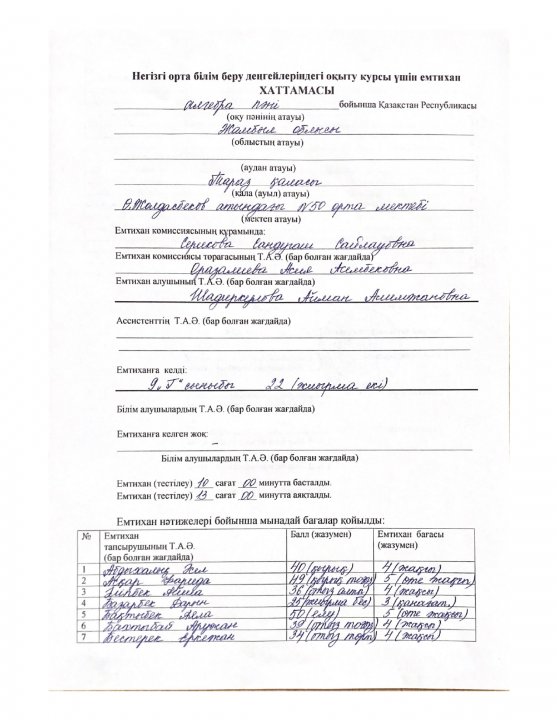 Негізгі орта білім беру деңгейлеріндегі оқыту курсы үшін емтихан
ХАТТАМАСЫ
алгебра пәні бойынша Қазақстан Республикасы
(оқу пәнінің атауы)
Жамбыл облысы
(облыстың атауы)
(аудан атауы)
Тараз қаласы
(қала (ауыл) атауы)
Ө.Жолдасбеков атындағы №50 орта мектебі
(мектеп атауы)
Емтихан комиссиясының құрамында:
Серикова Сандуғаш Сайлауовна
Емтихан комиссиясы төрағасының Т.А.Ә. (бар болған жағдайда)
Оразалиева Асия Асимбековна
Емтихан алушының Т.А.Ә. (бар болған жағдайда)
Шадиркулова Айман Алимжановна
Ассистенттің Т.А.Ә. (бар болған жағдайда)
Емтиханға келді:
9 "Г" сыныбы 22 (жиырма екі)
Білім алушылардың Т.А.Ә. (бар болған жағдайда)
Емтиханға келген жоқ: –
Білім алушылардың Т.А.Ә. (бар болған жағдайда)
Емтихан (тестілеу) 10 сағат 00 минутта басталды.
Емтихан (тестілеу) 13 сағат 00 минутта аяқталды.
Емтихан нәтижелері бойынша мынадай бағалар қойылды:
№ Емтихан тапсырушының Т.А.Ә. (бар болған жағдайда) Балл (жазумен) Емтихан бағасы (жазумен)
1 Абдихалық 40 (қырық) 4 (жақсы)
2 Ақжар Фарида 49 (қырық тоғыз) 5 (өте жақсы)
3 Әлібек 36 (отыз алты) 4 (жақсы)
4 Базарбек 25 (жиырма бес) 3 (қанағат.)
5 Бақтыбек 50 (елу) 5 (өте жақсы)
6 Бахтыбай Аружан 39 (отыз тоғыз) 4 (жақсы)
7 Бестерек Еркежан 34 (отыз төрт) 4 (жақсы)